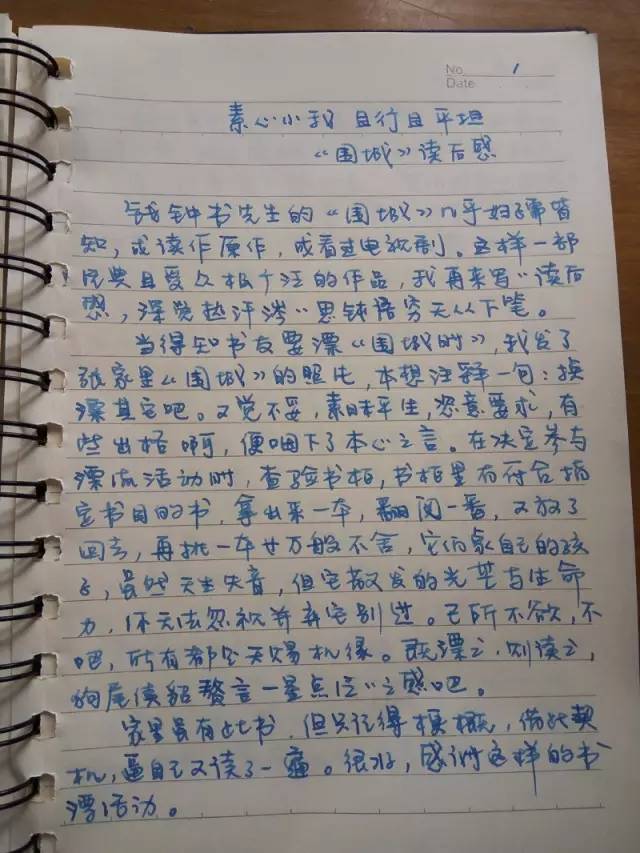 No. 1
Date
素心小我 且行且平坦
《围城》读后感
钱钟书先生的《围城》几乎妇孺皆
知，或读作原作，或看过电视剧。这样一部
经典且爱久根广泛的作品，我再来写“读后
感，深觉热汗涔涔思钝语穷无从下笔。
当得知书友要漂《围城时》，我发了
张家里《围城》的照片，本想注释一句：换
漂其它吧。又觉不妥，素昧平生，恣意要求，有
些出格啊，便咽下了本心之言。在决定参与
漂流活动时，查验书柜，书柜里有符合指
定书目的书，拿出来一本，翻阅一番，又放了
回去，再挑一本甘万般不舍，它们象自己的孩
子，虽然天生失音，但它散发的光芒与生命
力，你无法忽视并弃它别过。己所不欲，不
吧，所有都全天赐机缘。既漂之，则读之，
狗尾续貂赘言一星点泛泛之感吧。
家里虽有此书，但只记得梗概，借此契
机，逼自己又读了一遍。很好，感谢这样的书
漂活动。